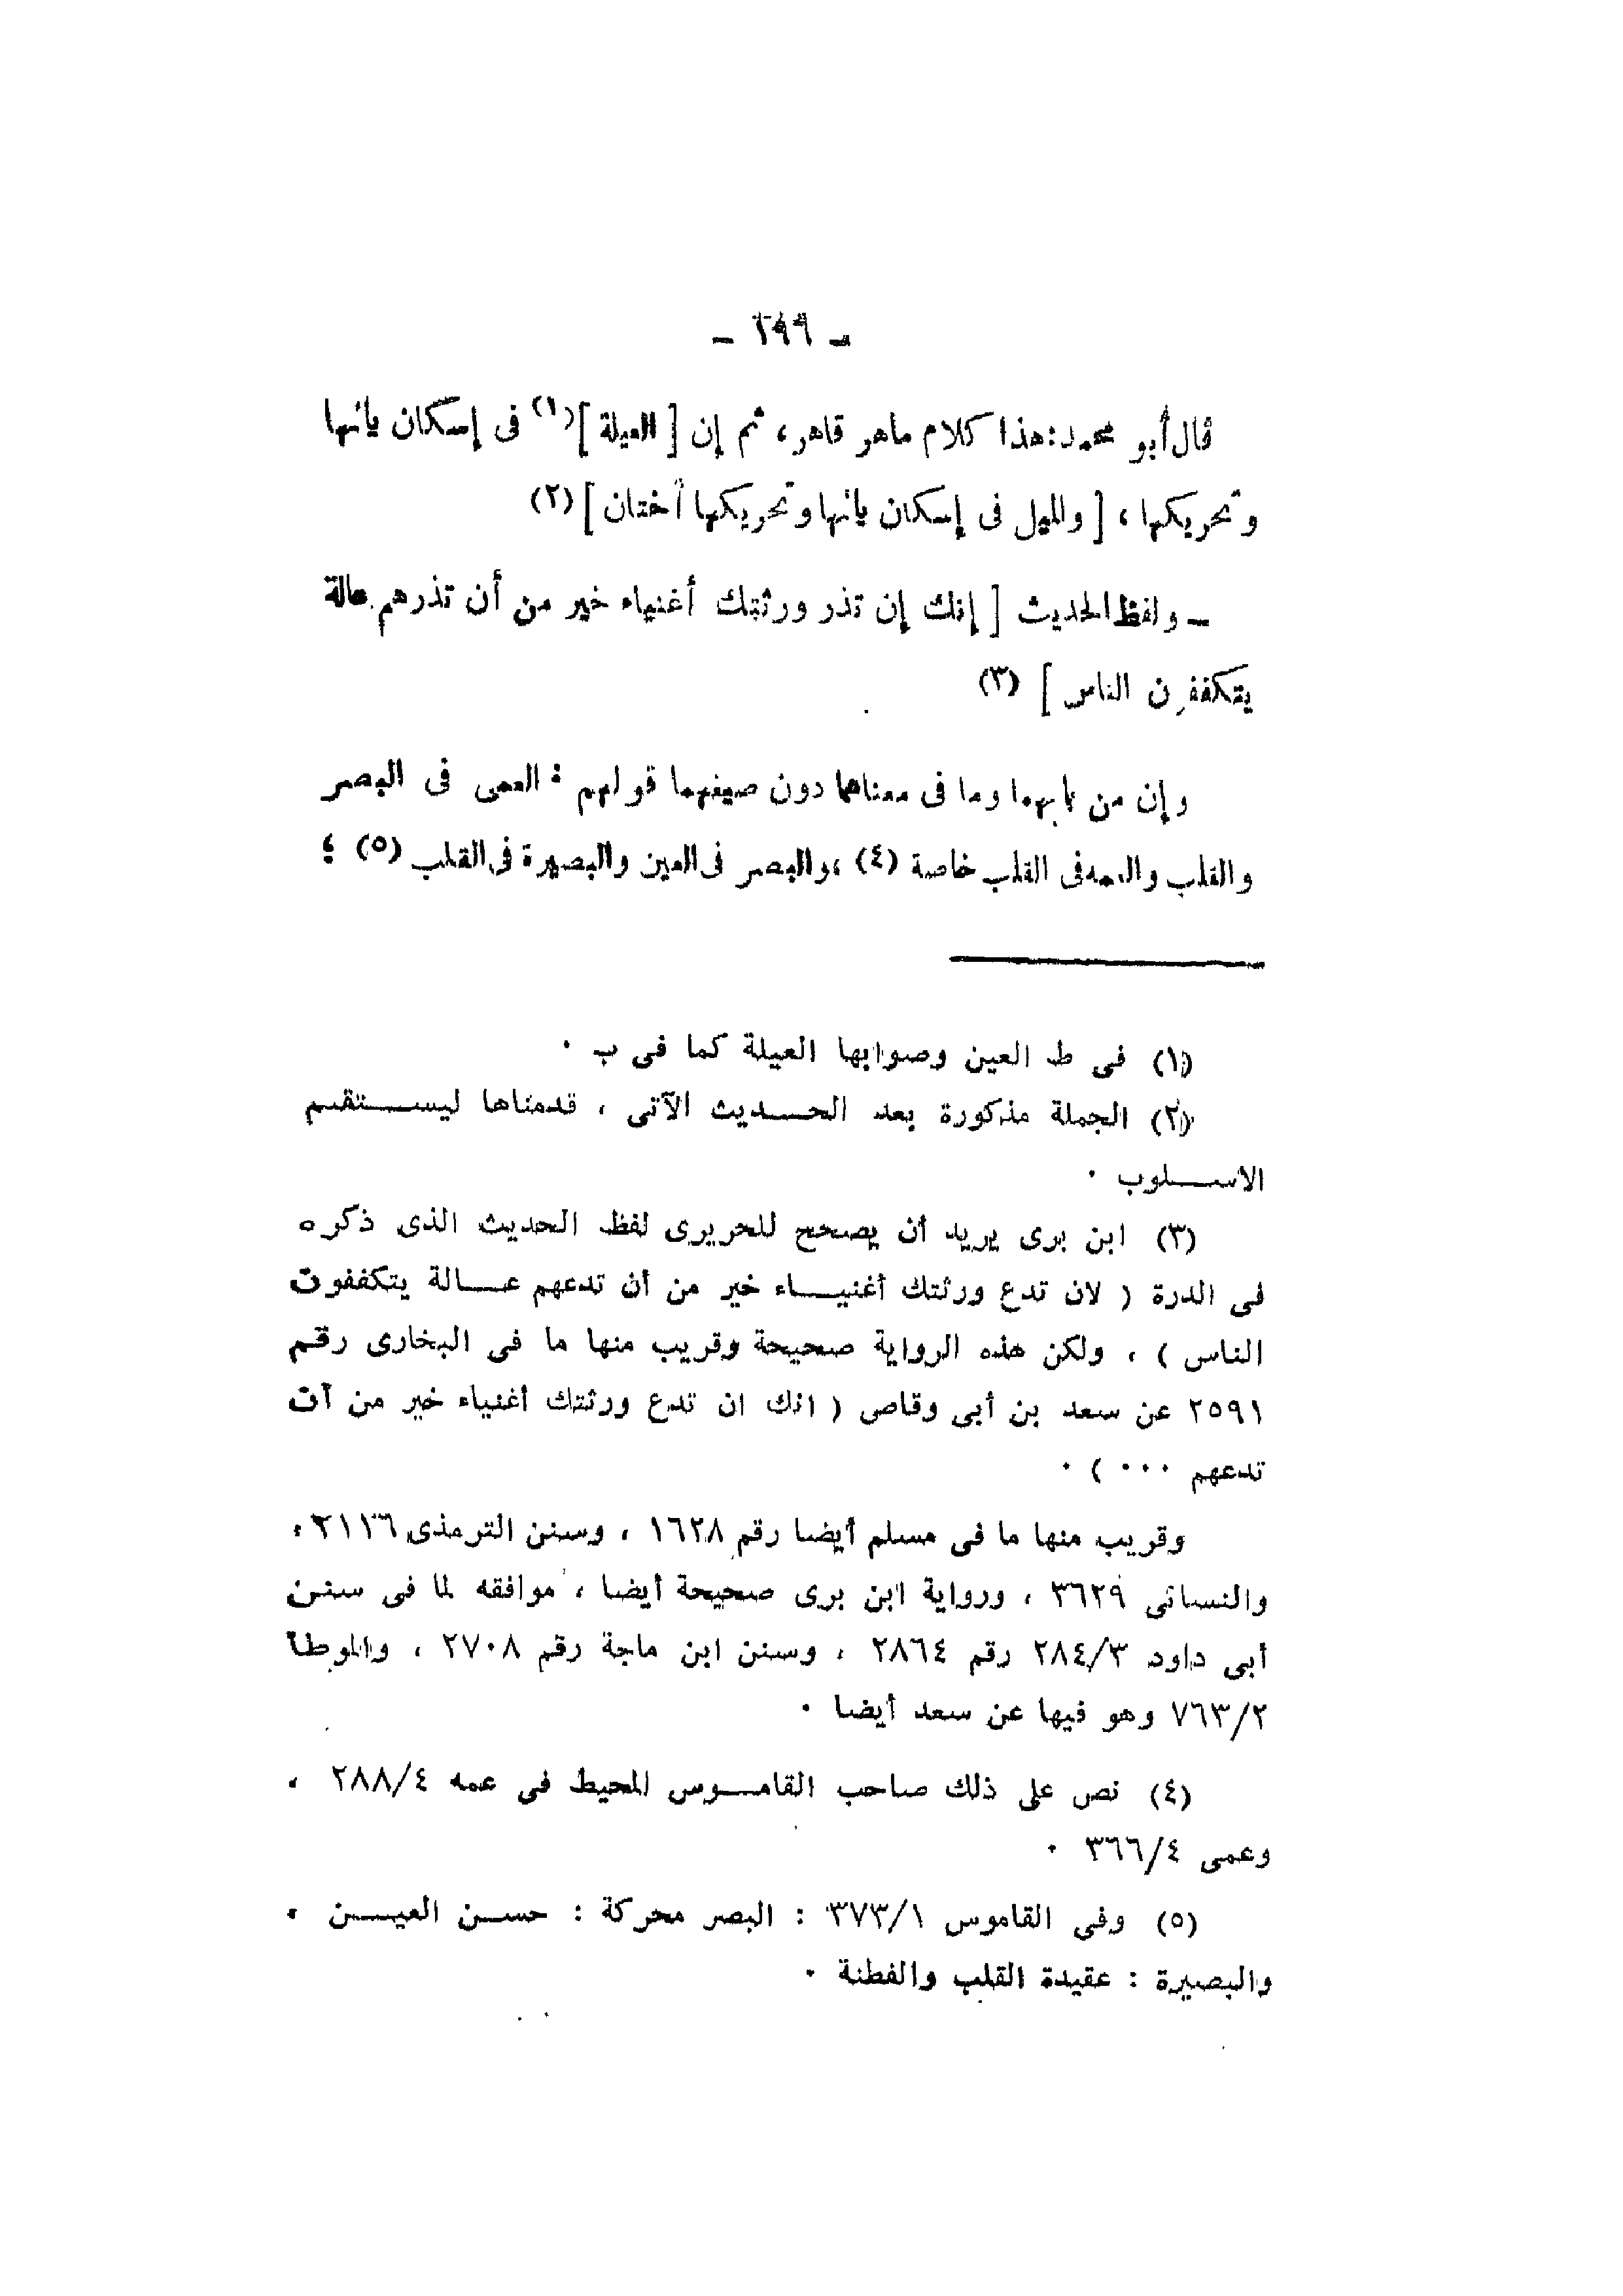 ـ ٢٩٩ ـ
قال أبو محمد: هذا كلام ماهر قاهر، ثم إن [ العيلة ](١) فى إسكان يائها
وتحريكها ، [ والميل فى إسكان يائها وتحريكها أختان ](٢)
ـ ولفظ الحديث [ إنك إن تذر ورثتك أغنياء خير من أن تذرهم عالة
يتكففون الناس ] (٣)
وإن من بابهما وما فى معناهما دون صيغهما قولهم : العمى فى البصر
والقلب والعمه فى القلب خاصة (٤) ، والبصر فى العين والبصيرة فى القلب (٥) ؛
(١) فى ط العين وصوابها العيلة كما فى ب ٠
(٢) الجملة مذكورة بعد الحـــديث الآتى ، قدمناها ليســـتقيم
الاســـلوب ٠
(٣) ابن برى يريد أن يصحح للحريرى لفظ الحديث الذى ذكره
فى الدرة ( لان تدع ورثتك أغنيـــاء خير من أن تدعهم عـــالة يتكففون
الناس ) ، ولكن هذه الرواية صحيحة وقريب منها ما فى البخارى رقم
٢٥٩١ عن سعد بن أبى وقاص ( انك ان تدع ورثتك أغنياء خير من أن
تدعهم ٠٠٠ ) ٠
وقريب منها ما فى مسلم أيضا رقم ١٦٢٨ ، وسنن الترمذى ٢١١٦ ،
والنسائى ٣٦٢٩ ، ورواية ابن برى صحيحة أيضا ، موافقه لما فى سنن
أبى داود ٢٨٤/٣ رقم ٢٨٦٤ ، وسنن ابن ماجة رقم ٢٧٠٨ ، والموطأ
٧٦٣/٢ وهو فيها عن سعد أيضا ٠
(٤) نص على ذلك صاحب القامـــوس المحيط فى عمه ٢٨٨/٤ ،
وعمى ٣٦٦/٤ ٠
(٥) وفى القاموس ٣٧٣/١ : البصر محركة : حســـن العيـــن ،
والبصيرة : عقيدة القلب والفطنة ٠